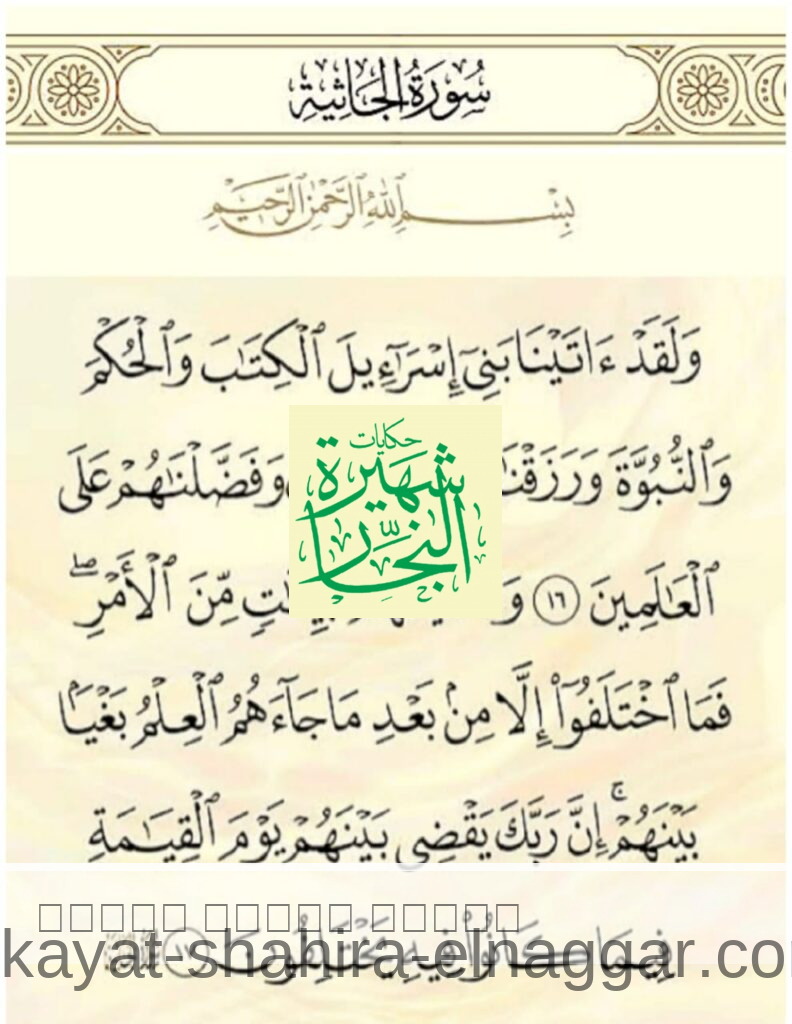 سُورَةُ الجَاثِيةِ
بِسْمِ ٱللَّهِ ٱلرَّحْمَٰنِ ٱلرَّحِيمِ
وَلَقَدْ ءَاتَيْنَا بَنِىٓ إِسْرَٰٓءِيلَ ٱلْكِتَٰبَ وَٱلْحُكْمَ
وَٱلنُّبُوَّةَ وَرَزَقْنَٰ وَفَضَّلْنَٰهُمْ عَلَى
حكايات
شهيرة
النجار
ٱلْعَٰلَمِينَ ١٦ مِّنَ ٱلْأَمْرِ ۖ
فَمَا ٱخْتَلَفُوٓا۟ إِلَّا مِنۢ بَعْدِ مَا جَآءَهُمُ ٱلْعِلْمُ بَغْيًۢا
بَيْنَهُمْ ۚ إِنَّ رَبَّكَ يَقْضِى بَيْنَهُمْ يَوْمَ ٱلْقِيَٰمَةِ
فِيمَا كَانُوا۟ فِيهِ يَخْتَلِفُونَ ١٧
kayat-shahira-elnaggar.co